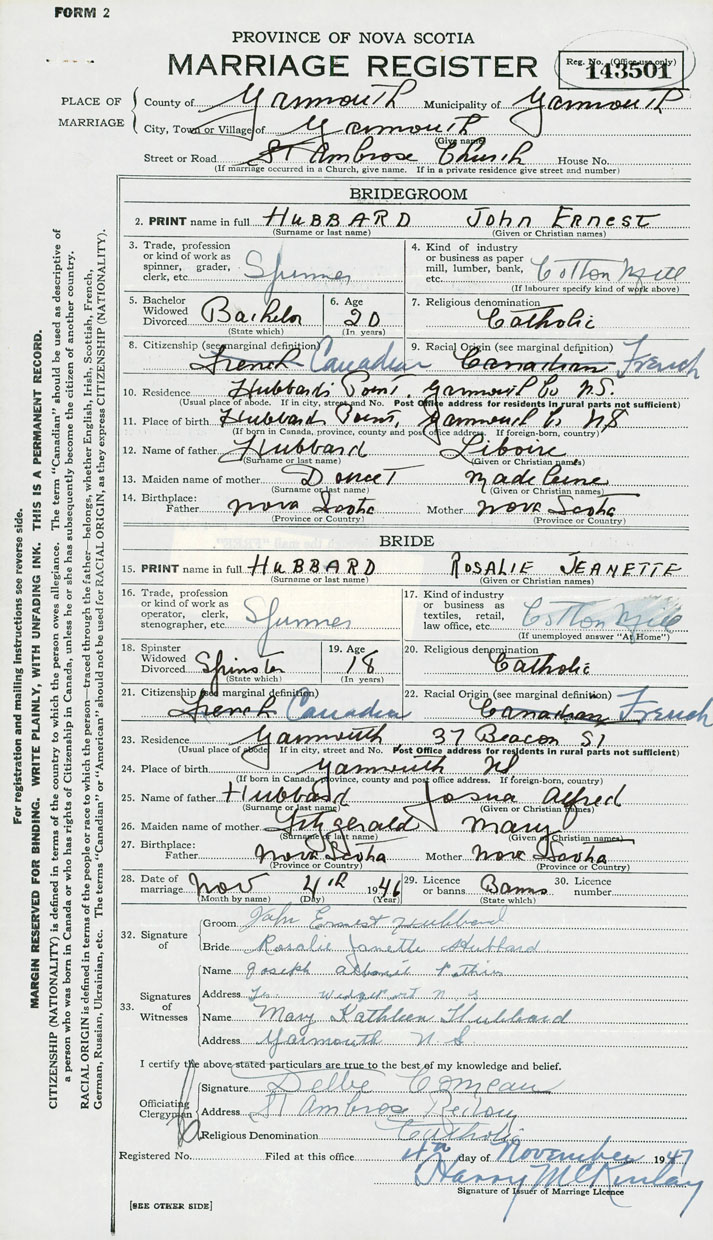 FORM 2
PROVINCE OF NOVA SCOTIA
MARRIAGE REGISTER
Reg. No. (Office use only)
143501
PLACE OF MARRIAGE
County of Yarmouth Municipality of Yarmouth
City, Town or Village of Yarmouth
(Give name)
Street or Road St Ambrose Church House No.
(If marriage occurred in a Church, give name. If in a private residence give street and number)
BRIDEGROOM
2. PRINT name in full HUBBARD JOHN ERNEST
(Surname or last name) (Given or Christian names)
3. Trade, profession or kind of work as spinner, grader, clerk, etc. Spinner
4. Kind of industry or business as paper mill, lumber, bank, etc. Cotton Mill
(If labourer specify kind of work above)
5. Bachelor Widowed Divorced Bachelor
(State which)
6. Age 20
(In years)
7. Religious denomination Catholic
8. Citizenship (see marginal definition) French Canadian
9. Racial Origin (see marginal definition) Canadian French
10. Residence Hubbards Point, Yarmouth Co. N.S.
(Usual place of abode. If in city, street and No. Post Office address for residents in rural parts not sufficient)
11. Place of birth Hubbards Point, Yarmouth Co NS
(If born in Canada, province, county and post office address. If foreign-born, country)
12. Name of father Hubbard Liboire
(Surname or last name) (Given or Christian names)
13. Maiden name of mother Doucet Madeleine
(Surname or last name) (Given or Christian names)
14. Birthplace: Father Nova Scotia Mother Nova Scotia
(Province or Country) (Province or Country)
BRIDE
15. PRINT name in full HUBBARD ROSALIE JEANETTE
(Surname or last name) (Given or Christian names)
16. Trade, profession or kind of work as operator, clerk, stenographer, etc. Spinner
17. Kind of industry or business as textiles, retail, law office, etc. Cotton Mill
(If unemployed answer "At Home")
18. Spinster Widowed Divorced Spinster
(State which)
19. Age 18
(In years)
20. Religious denomination Catholic
21. Citizenship (see marginal definition) French Canadian
22. Racial Origin (see marginal definition) Canadian French
23. Residence Yarmouth 37 Beacon St
(Usual place of abode If in city, street and No. Post Office address for residents in rural parts not sufficient)
24. Place of birth Yarmouth NS
(If born in Canada, province, county and post office address. If foreign-born, country)
25. Name of father Hubbard Josua Alfred
(Surname or last name) (Given or Christian names)
26. Maiden name of mother Fitzgerald Mary
(Surname or last name) (Given or Christian names)
27. Birthplace: Father Nova Scotia Mother Nova Scotia
(Province or Country) (Province or Country)
28. Date of marriage Nov 4th 1946
(Month by name) (Day) (Year)
29. Licence or banns Banns
(State which)
30. Licence number
32. Signature of
Groom John Ernest Hubbard
Bride Rosalie Janette Hubbard
33. Signatures of Witnesses
Name Joseph
Address N S
Name Mary Kathleen Hubbard
Address Yarmouth N. S
I certify the above stated particulars are true to the best of my knowledge and belief.
Officiating Clergyman
Signature Delbé Comeau
Address St Ambrose Rectory
Religious Denomination Catholic
Registered No. Filed at this office 4th day of November 1947
Harry McKinlay
Signature of Issuer of Marriage Licence
[SEE OTHER SIDE]
For registration and mailing instructions see reverse side.
MARGIN RESERVED FOR BINDING. WRITE PLAINLY, WITH UNFADING INK. THIS IS A PERMANENT RECORD.
CITIZENSHIP (NATIONALITY) is defined in terms of the country to which the person owes allegiance. The term "Canadian" should be used as descriptive of
a person who was born in Canada or who has rights of Citizenship in Canada, unless he or she has subsequently become the citizen of another country.
RACIAL ORIGIN is defined in terms of the people or race to which the person—traced through the father—belongs, whether English, Irish, Scottish, French,
German, Russian, Ukrainian, etc. The terms "Canadian" or "American" should not be used for RACIAL ORIGIN, as they express CITIZENSHIP (NATIONALITY).